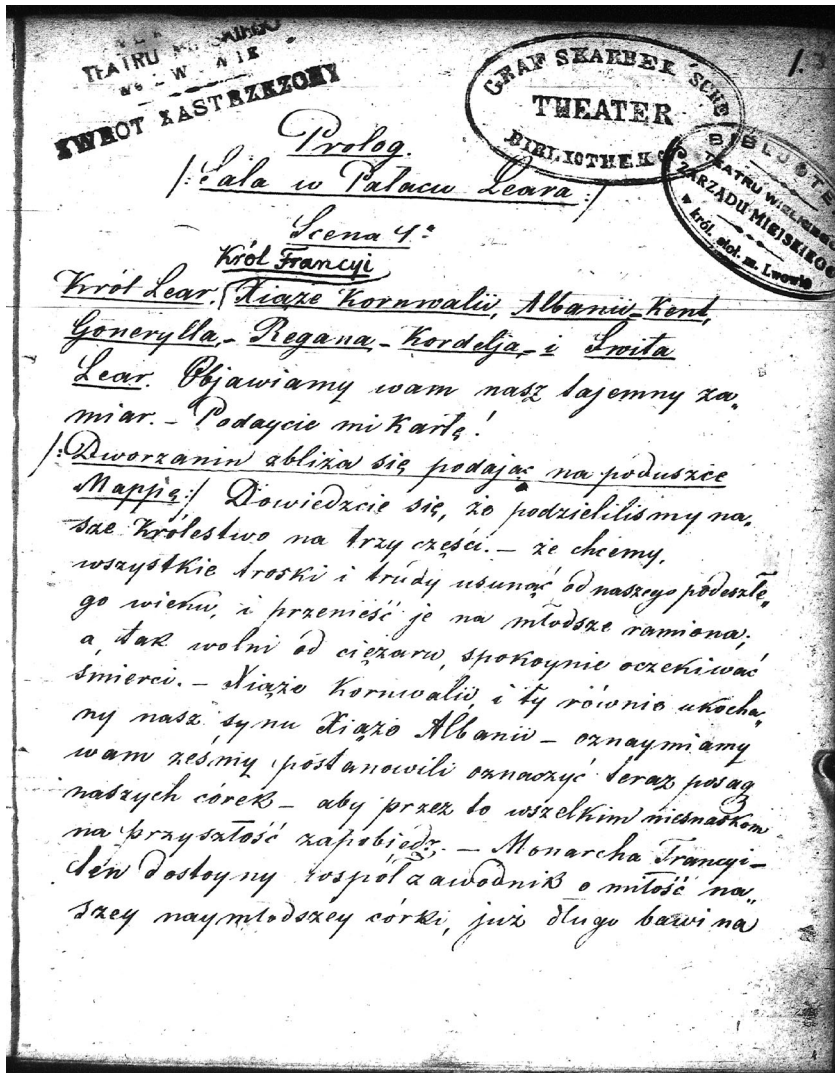 TEATRU MIEJSKIEGO
WE LWOWIE
ZWROT ZASTRZEŻONY
GRAF SKARBEK'SCHE
THEATER
BIBLIOTHEK
1.
BIBLIOTE
TEATRU WIELKIEGO
ZARZĄDU MIEJSKIEGO
w król. stoł. m. Lwowie
Prolog.
/: Sala w Pałacu Leara :/
Scena 1ª
Król Francyi
Król Lear, Xiąże Kornwalii, Albanii – Kent,
Gonerylla, – Regana – Kordelja – i Świta
Lear. Objawiamy wam nasz tajemny za„
miar. – Podaycie mi Kartę!
/: Dworzanin zbliża się podając na poduszce
Mappię :/ Dowiedzcie się, żo podzieliliśmy na„
sze Królestwo na trzy części. – że chcemy,
wszystkie troski i trudy usunąć od naszego podeszłe„
go wieku, i przenieść je na młodsze ramiona;
a tak wolni od ciężaru, spokoynie oczekiwać
śmierci. – Xiąże Kornwalii, i ty równie ukocha„
ny nasz synu Xiąże Albanii – oznaymiamy
wam żeśmy postanowili oznaczyć teraz posag
naszych córek – aby przez to wszelkim niesnaskom
na przyszłość zapobiedz. – Monarcha Francyi –
ten dostoyny współzawodnik o miłość na„
szey naymłodszey córki, już długo bawi na